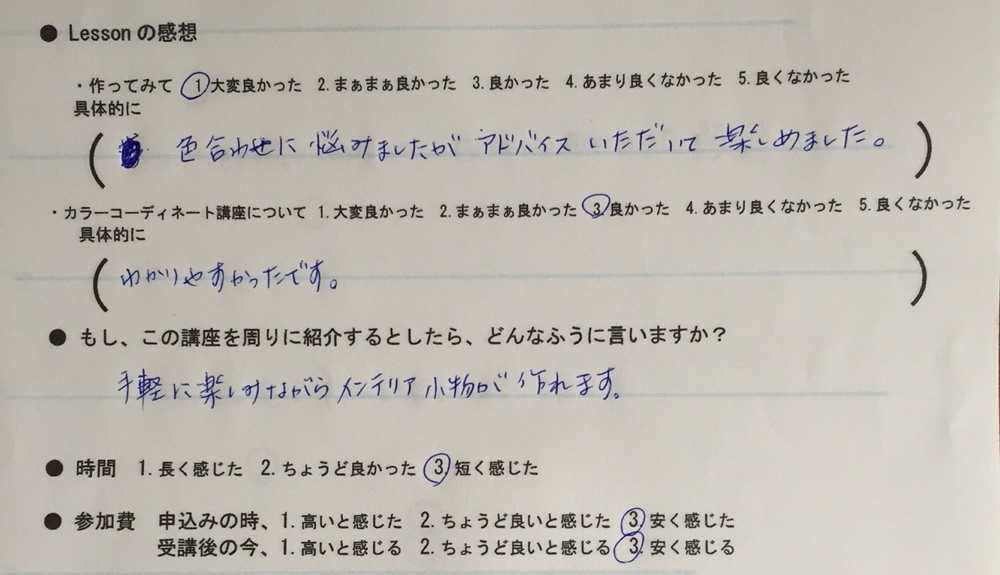 ● Lessonの感想
・作ってみて ①大変良かった 2.まぁまぁ良かった 3.良かった 4.あまり良くなかった 5.良くなかった
具体的に
( 色合わせに悩みましたがアドバイスいただいて楽しめました。 )
・カラーコーディネート講座について 1.大変良かった 2.まぁまぁ良かった ③.良かった 4.あまり良くなかった 5.良くなかった
具体的に
( わかりやすかったです。 )
● もし、この講座を周りに紹介するとしたら、どんなふうに言いますか？
手軽に楽しみながらインテリア小物が作れます。
● 時間 1.長く感じた 2.ちょうど良かった ③.短く感じた
● 参加費 申込みの時、1.高いと感じた 2.ちょうど良いと感じた ③.安く感じた
受講後の今、1.高いと感じる 2.ちょうど良いと感じる ③.安く感じる